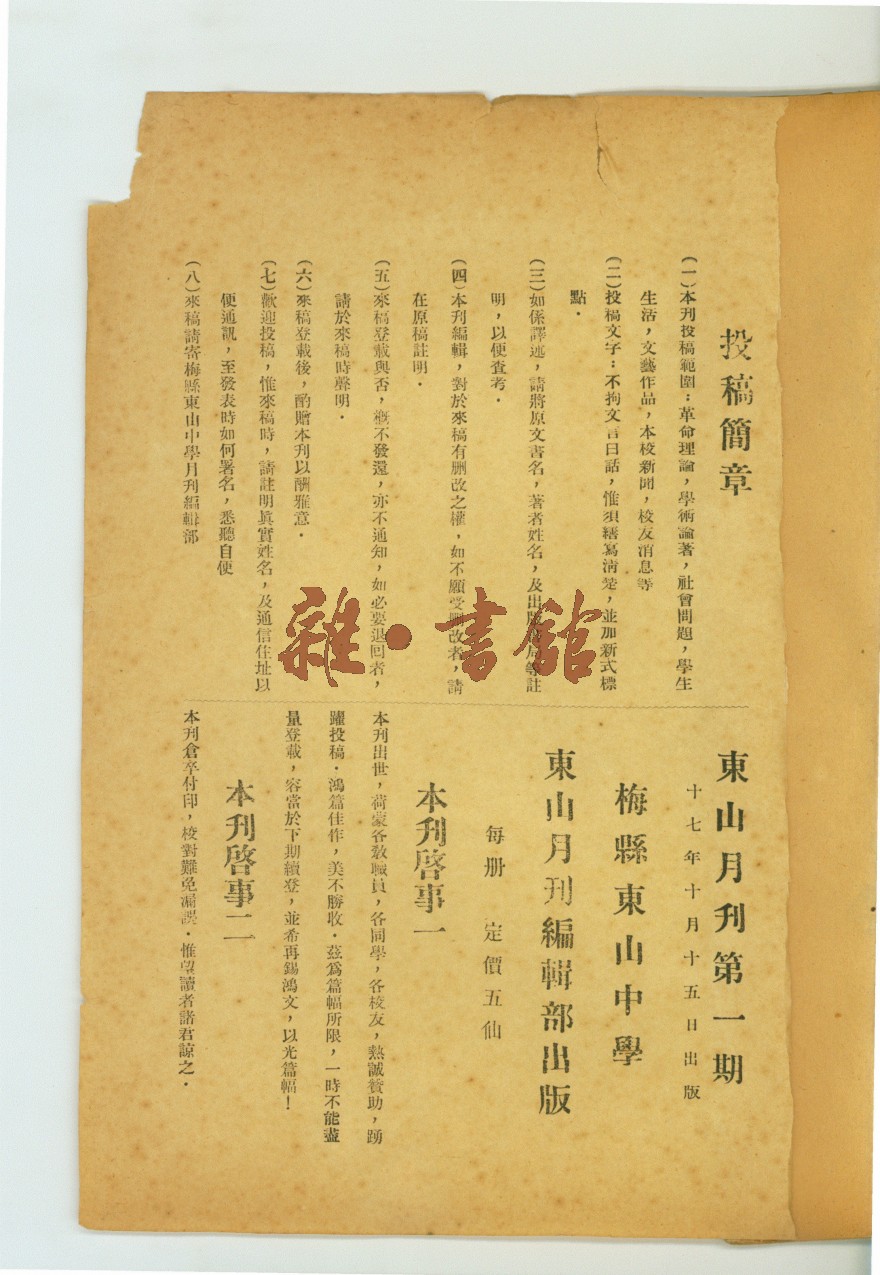 投稿簡章
(一)本刊投稿範圍：革命理論，學術論著，社會問題，學生
生活，文藝作品，本校新聞，校友消息等
(二)投稿文字：不拘文言白話，惟須繕寫淸楚，並加新式標
點．
(三)如係譯述，請將原文書名，著者姓名，及出版書局等註
明，以便查考．
(四)本刊編輯，對於來稿有删改之權，如不願受删改者，請
在原稿註明．
(五)來稿登載與否，槪不發還，亦不通知，如必要退回者，
請於來稿時聲明．
(六)來稿登載後，酌贈本刊以酬雅意．
(七)歡迎投稿，惟來稿時，請註明眞實姓名，及通信住址以
便通訊，至發表時如何署名，悉聽自便
(八)來稿請寄梅縣東山中學月刊編輯部
東山月刊第一期
十七年十月十五日出版
梅縣東山中學
東山月刊編輯部出版
每册 定價五仙
本刋啓事一
本刋出世，荷蒙各敎職員，各同學，各校友，熱誠贊助，踴
躍投稿．鴻篇佳作，美不勝收．茲爲篇幅所限，一時不能盡
量登載，容當於下期續登，並希再錫鴻文，以光篇幅！
本刋啓事二
本刋倉卒付印，校對難免漏誤．惟望讀者諸君諒之．
雜·書館